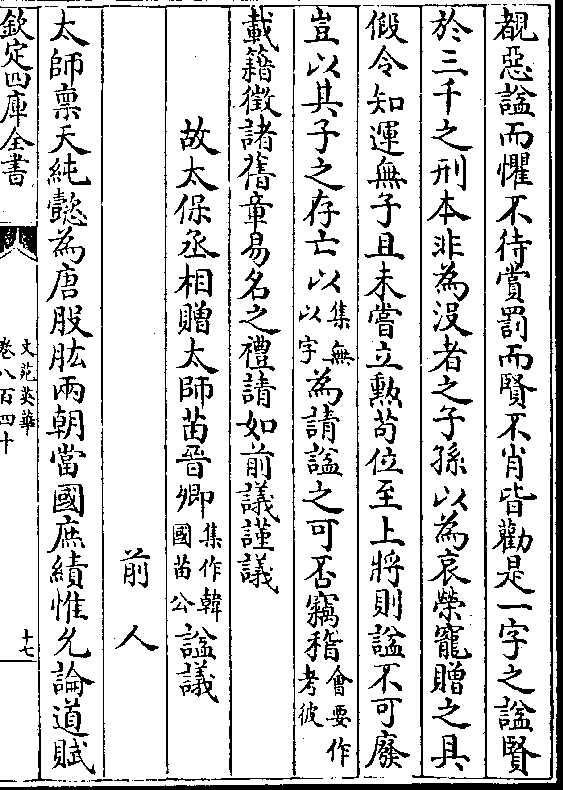 覩惡諡而懼不待賞罰而賢不肖皆勸是一字之諡賢
於三千之刑本非為沒者之子孫以為哀榮寵贈之具
假令知運無子且未嘗立勲苟位至上將則諡不可廢
豈以其子之存亡以集無以字為請諡之可否竊稽會要作考彼
載籍徵諸舊章易名之禮請如前議謹議
故太保丞相贈太師苗晉卿集作韓國苗公諡議
前人
太師禀天純懿為唐股肱兩朝當國庶績惟允論道賦
欽定四庫全書
文苑英華
卷八百四十
十七